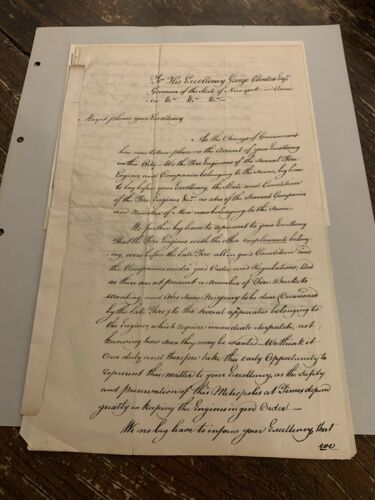 To His Excellency George Clinton Esqr
Governor of the State of New york
&c &c &c
May it please your Excellency
As the Change of Government
has now taken place on the arrival of your Excellency
in this City We the Fire Engineers of the Several Fire
Engines and Companies belonging to the same, beg leave
to lay before your Excellency, the State and Condition
of the Fire Engines &c as also of the Several Companies
and Number of Men now belonging to the Same.
We further beg leave to represent to your Excellency
That the Fire Engines with the other implements belong
ing, were before the late Fire all in good Condition and
the Companies under good Order and Regulations, And
as there are at present a Number of Fire Buckets
wanting and also some Repairing to be done (Occasioned
by the late Fire) to the Several apparatus belonging to
the Engines which require immediate dispatch, not
knowing how soon they may be wanted – We think it
Our duty and therefore take this early Opportunity to
represent this matter to your Excellency, as the Safety
and preservation of this Metropolis at Times depend
greatly on keeping the Engines in good Order –
We no beg leave to inform your Excellency, that
we